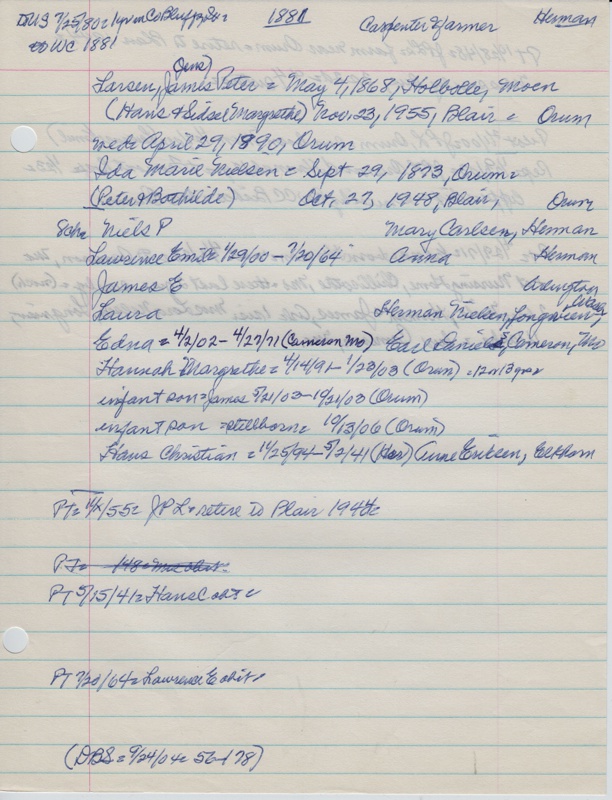 1881 Carpenter & farmer Herman
WC 1881
(Jens)
Larsen, James Peter = May 4, 1868, Holbolle, Moen
(Hans & Sidsel Margrethe) Nov. 23, 1955, Blair = Orum
wed = April 29, 1890, Orum
Ida Marie Nielsen = Sept 29, 1873, Orum =
(Peter & Bothilde) Oct. 27, 1948, Blair, Orum
8ch = Niels P Mary Carlsen, Herman
Lawrence Emil = 1/29/00 - 7/20/64 Anna Herman
James E Arlington
Laura Herman Nielsen,
Edna = 4/2/02 - 4/27/71 (Cameron Mo) Earl Daniels, Cameron, Mo
Hannah Margrethe = 4/14/91 - 1/23/03 (Orum)
infant son = James 5/21/03 - 10/21/03 (Orum)
infant son = stillborn = 10/13/06 (Orum)
Hans Christian = 11/25/94 - 5/2/41 (Her) Erixsen, Elkhorn
PT = JPL = retire to Blair 1944 =
PT =
PT 5/15/41 = Hans C obit =
PT 7/20/64 = Lawrence E obit =
(DBS = 9/24/04 = 56-178)